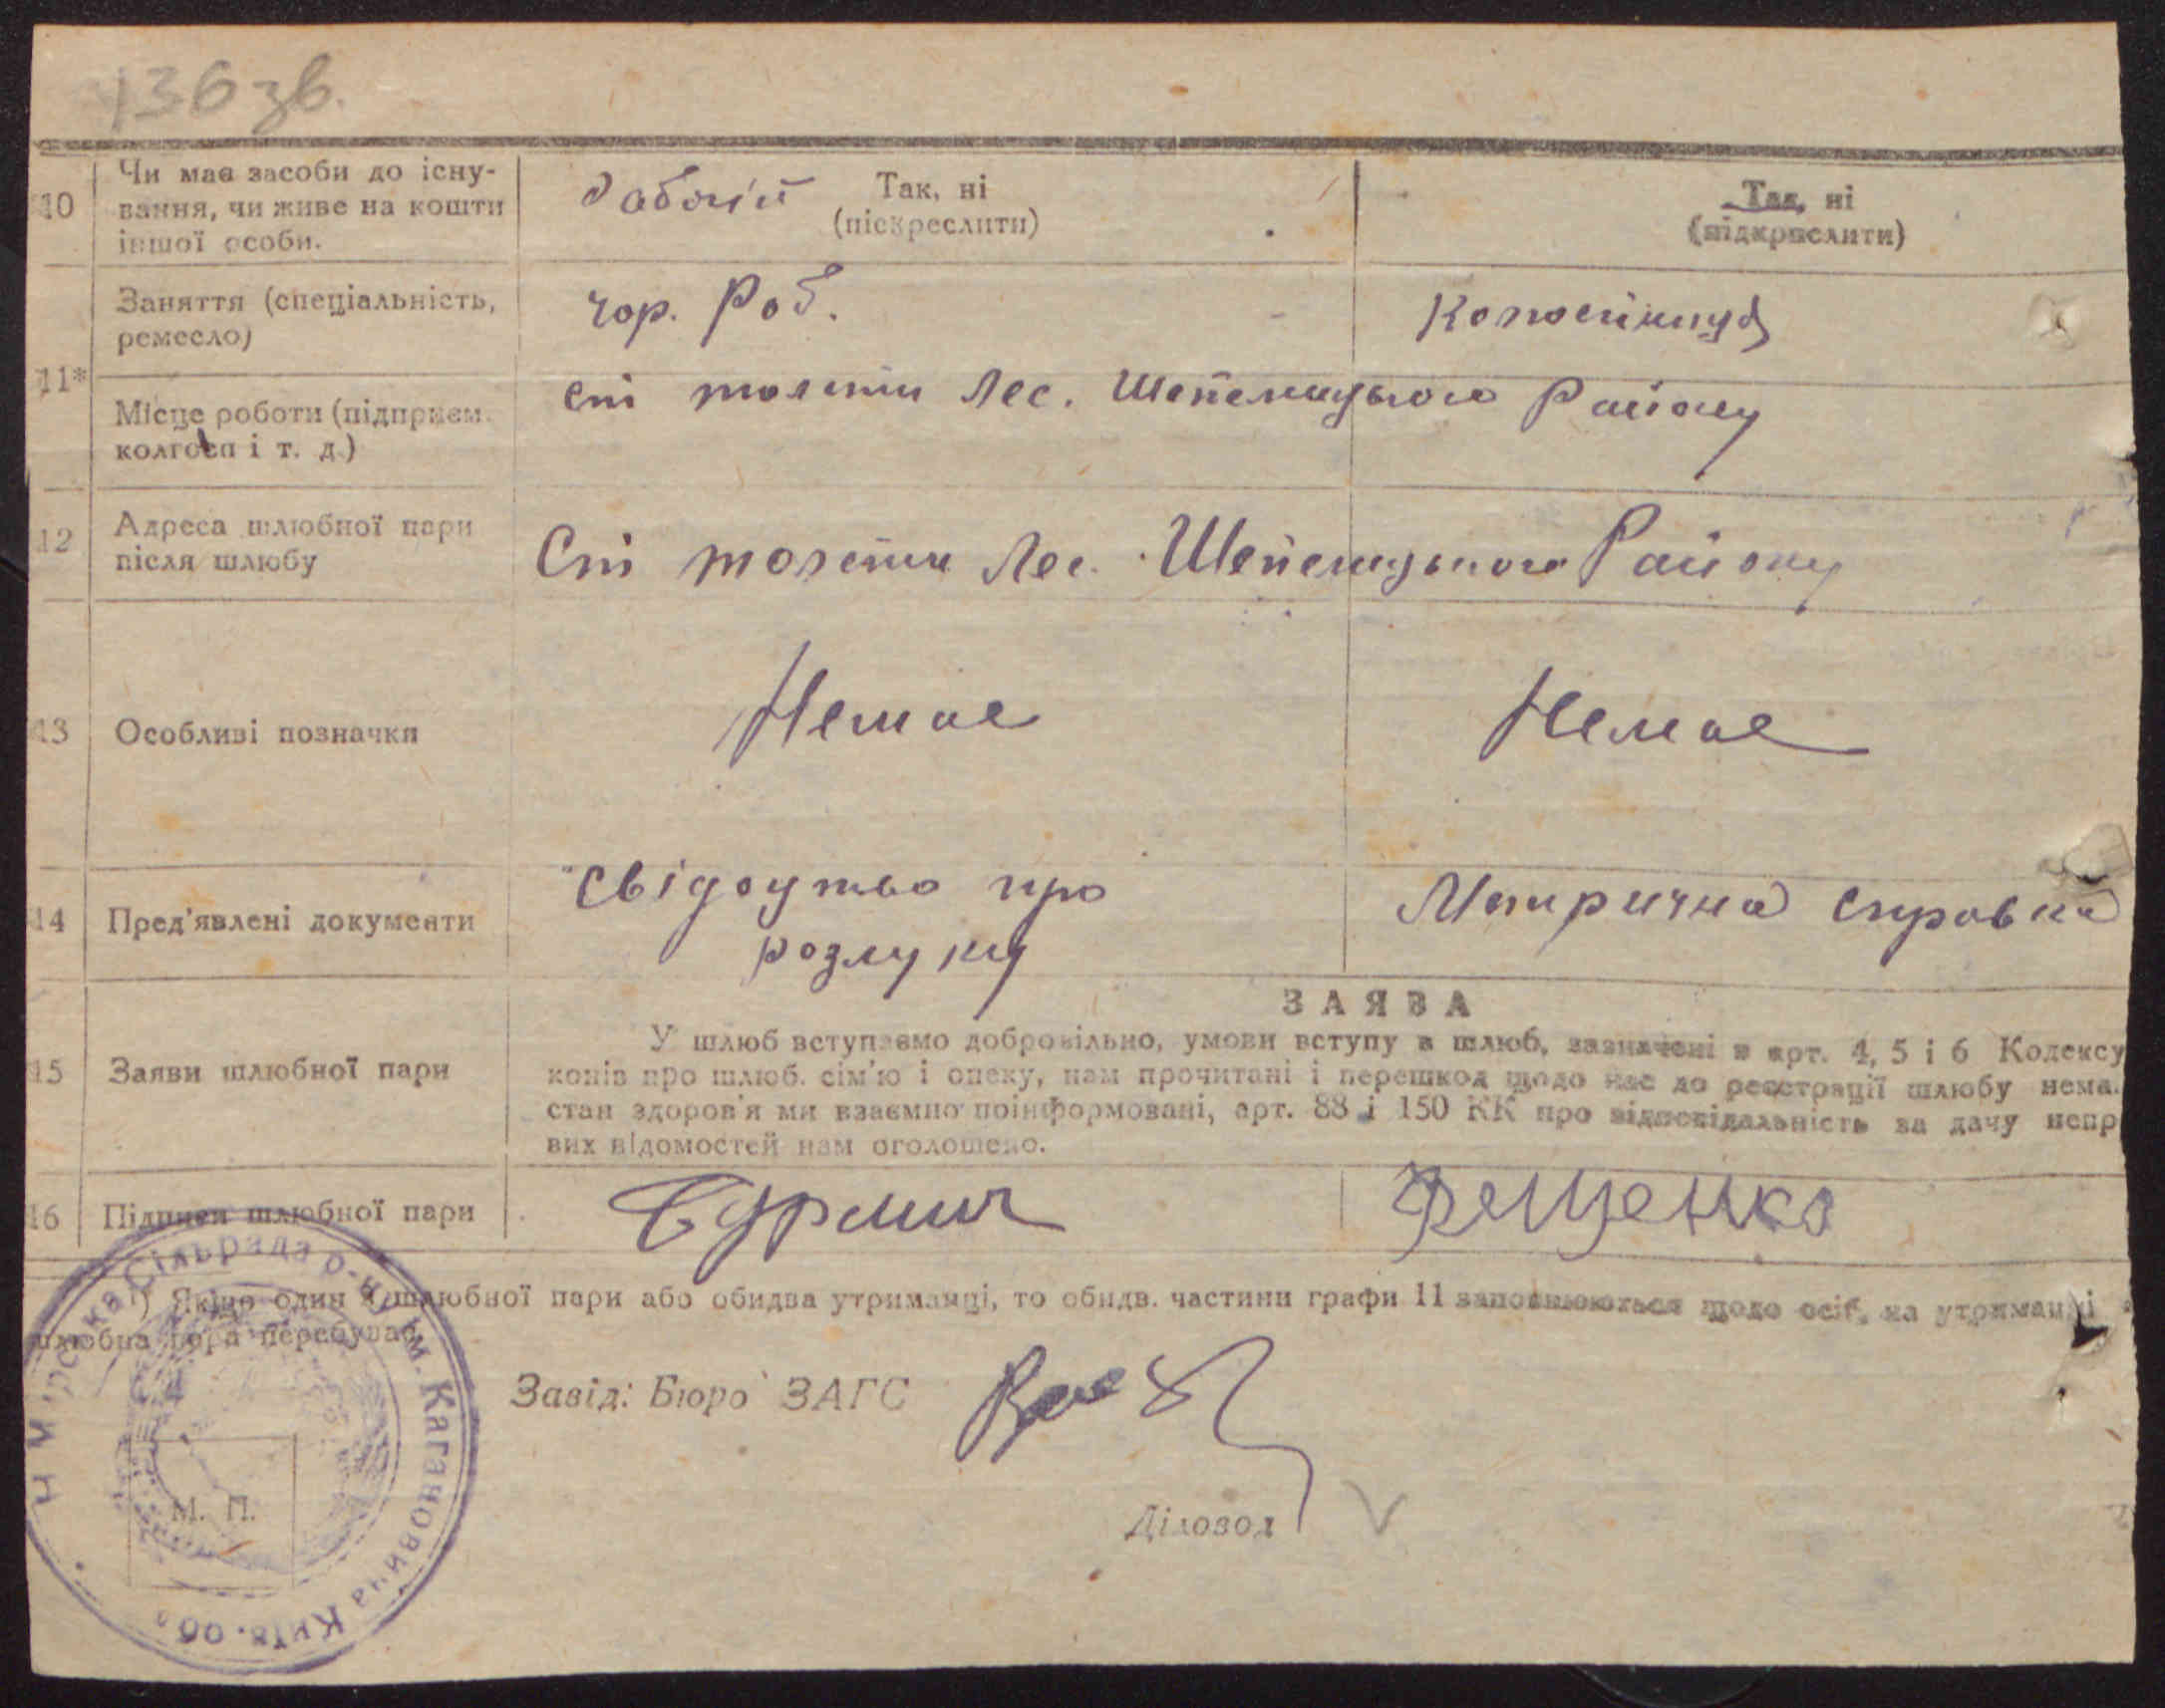 136 зв.
10
Чи має засоби до існу-
вання, чи живе на кошти
іншої особи.
Рабочій
Так, ні
(піскреслити)
Так, ні
(підкреслити)
11*
Заняття (спеціальність,
ремесло)
чор. Роб.
Місце роботи (підприєм.
колгосп і т. д.)
Лес. Шепелицького Району
12
Адреса шлюбної пари
після шлюбу
Лес. Шепелицького Району
13
Особливі позначки
Немає
Немає
14
Пред'явлені документи
Свідоцтво про
розлуку
Метрична справка
ЗАЯВА
15
Заяви шлюбної пари
У шлюб вступаємо добровільно, умови вступу в шлюб, зазначені в арт. 4, 5 і 6 Кодексу
конів про шлюб. сім'ю і опеку, нам прочитані і перешкод щодо нас до реєстрації шлюбу нема.
стан здоров'я ми взаємно поінформовані, арт. 88 і 150 КК про відповідальність за дачу непр
вих відомостей нам оголошено.
16
Підписи шлюбної пари
Фещенко
1) Якщо один з шлюбної пари або обидва утриманці, то обидв. частини графи 11 заповнюються щодо осіб, на утриманні
шлюбна пара перебуває.
Завід: Бюро ЗАГС
Діловод
М. П.
Сільрада р-ну ім. Кагановича Київ. обл